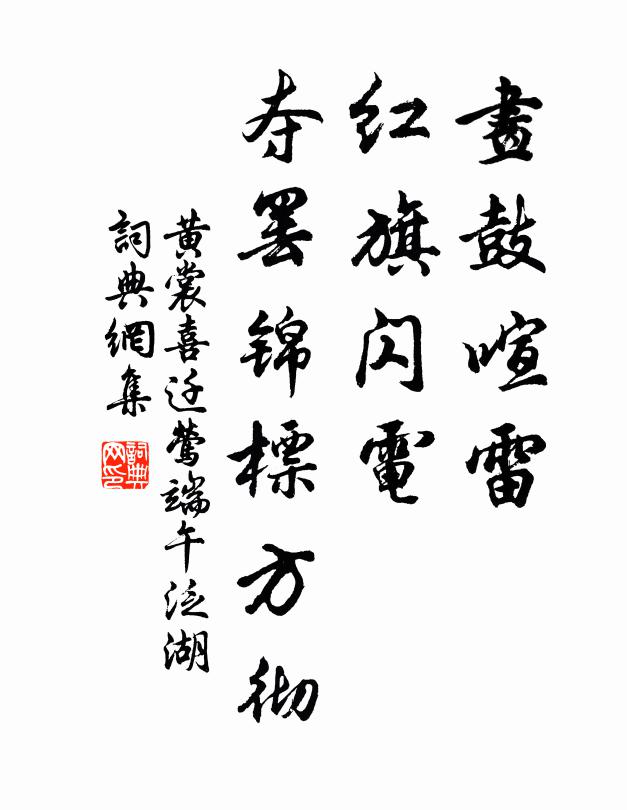 畫鼓喧雷
红旗闪電
夺罢锦標方彻
黄裳喜迁莺端午泛湖
詞典網集
詞典網印